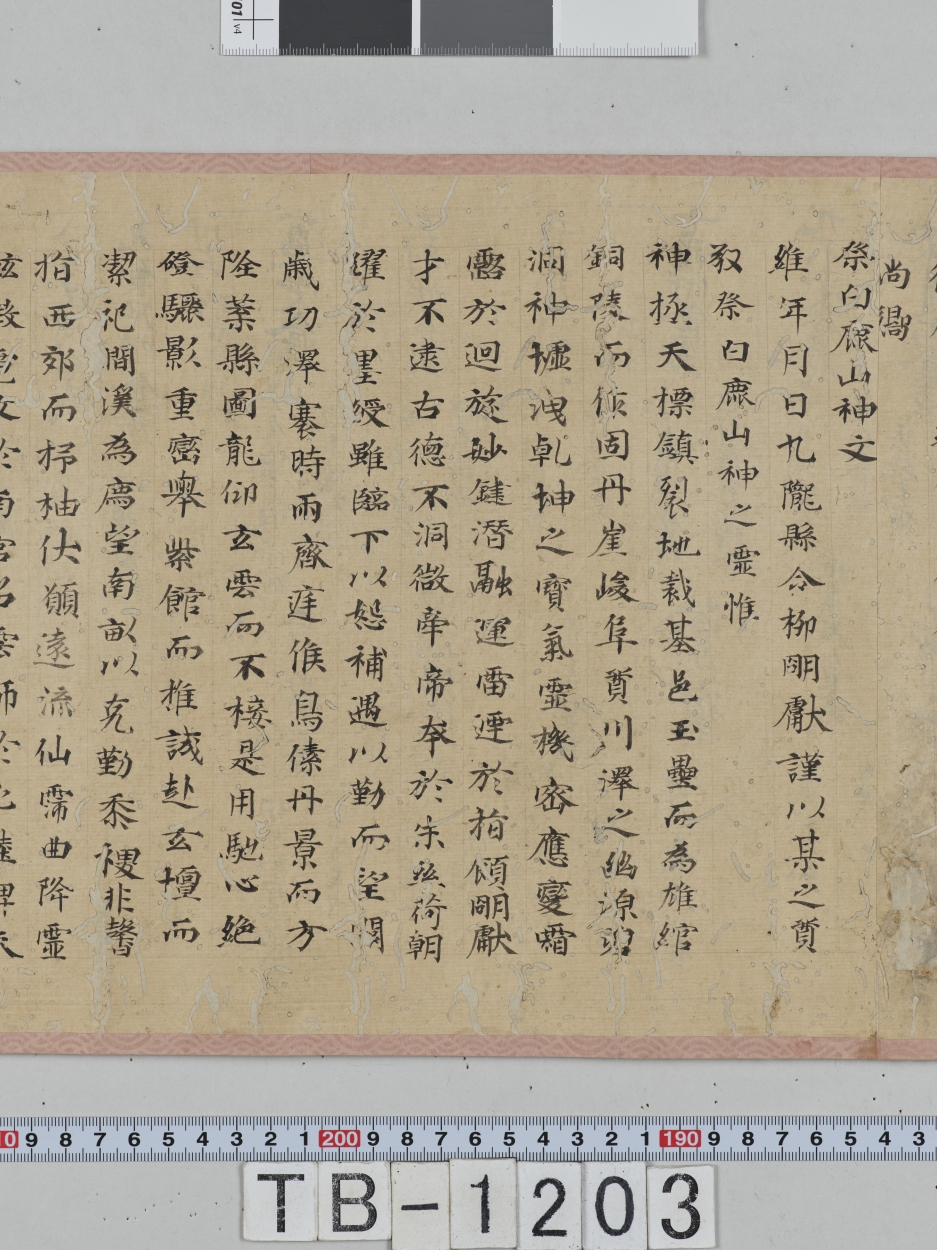 尚饗
祭白鹿山神文
維年月日九隴縣令柳明獻謹以某之質
敢祭白鹿山神之靈惟
神極天標鎮裂地裁基邑玉壘而為雄綰
銅陵而作固丹崖峻阜質川澤之幽源
洞神墟洩乹坤之寶氣靈機密應變霜
露於迴旋妙鍵潛融運雷逕於指傾明獻
才不逮古德不洞微牽帝本於朱絲荷朝
耀於墨綬雖臨下以恕補遇以勤而望
歲功澤褰時雨齊寔候鳥傃丹景而方
葉縣圖龍仰玄雲而不接是用馳心絶
磴驪影重巒舉紫館而推誠赴玄壇而
潔祀澗溪為薦望南畝以克勤黍稷非馨
指西郊而杼柚伏願遠流仙霈曲降靈
於南宮 雲師於
TB-1203
10 9 8 7 6 5 4 3 2 1 200 9 8 7 6 5 4 3 2 1 190 9 8 7 6 5 4 3